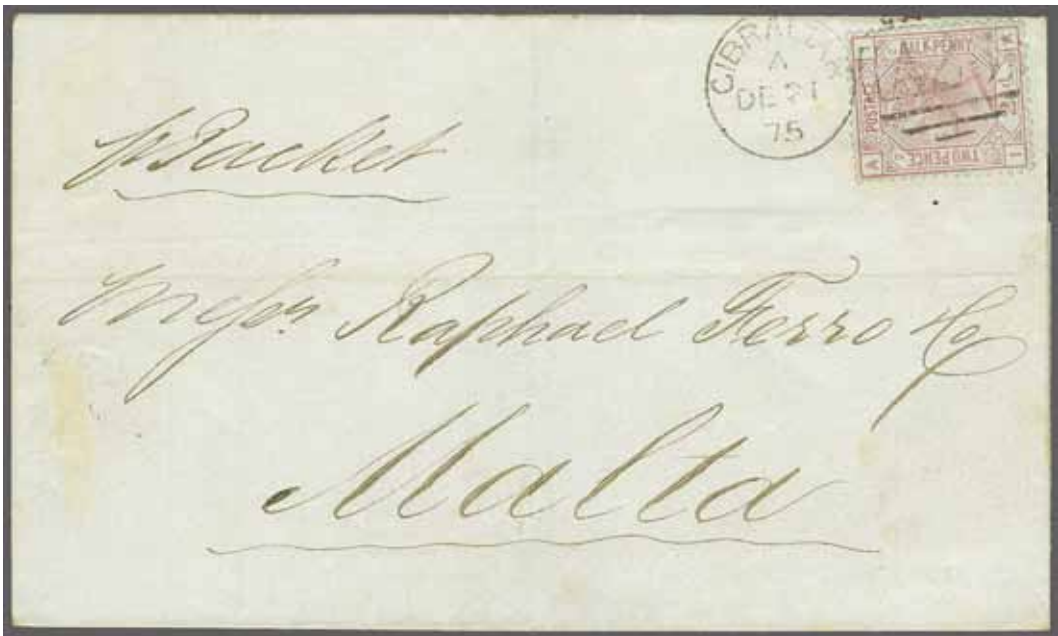 GIBRALTAR
A
DE 21
75
POSTAGE
HALF-PENNY
TWO PENCE
A
I
p Packet
Messrs Raphael Ferro & Co
Malta